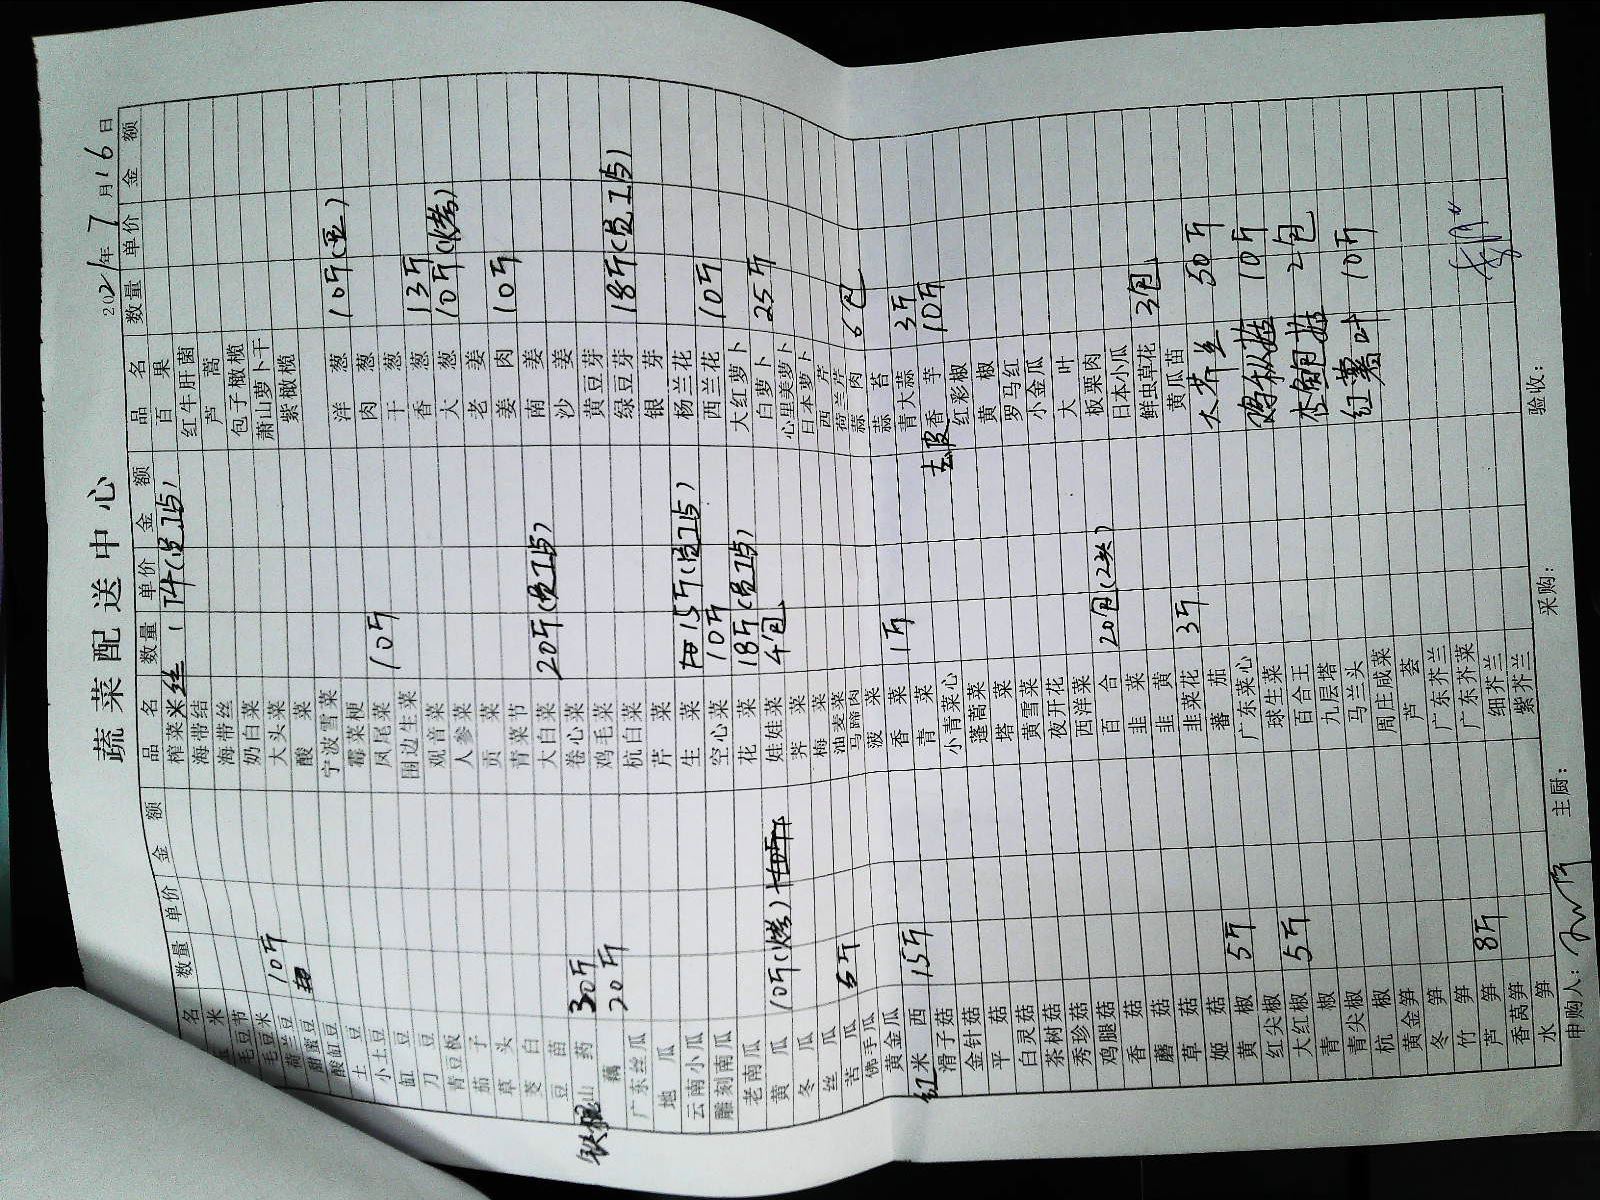 蔬菜配送中心
2021年7月16日
名 数量 单价 金额
米
毛豆节
毛豆米
荷兰豆 10斤
甜蜜豆
酸缸豆
土豆
小土豆
缸豆
刀豆
青豆板
茄子
草头
茭白
豆苗
铁棍山药 30斤
藕 20斤
广东丝瓜
地瓜
云南小瓜
雕刻南瓜
老南瓜
黄瓜 10斤(烤)
冬瓜
丝瓜
苦瓜 5斤
佛手瓜
黄金瓜
红米西 15斤
滑子菇
金针菇
平菇
白灵菇
茶树菇
秀珍菇
鸡腿菇
香菇
蘑菇
草菇
姬菇
黄椒 5斤
红尖椒
大红椒 5斤
青椒
青尖椒
杭椒
黄金笋
冬笋
竹笋
芦笋 8斤
香莴笋
水笋
品名 数量 单价 金额
榨菜丝 1件(员工
海带结
海带丝
奶白菜
大头菜
酸菜
宁波雪菜
霉菜梗
凤尾菜 10斤
围边生菜
观音菜
人参菜
贡菜
青菜节
大白菜 20斤(员工
卷心菜
鸡毛菜
杭白菜
芹菜
生菜 15斤(员工
空心菜 10斤
花菜 18斤(员工
娃娃菜 4包
荠菜
梅菜
油麦菜
马蹄肉
菠菜
香菜 1斤
青菜
小青菜心
蓬蒿菜
塔菜
黄雪菜
夜开花
西洋菜
百合 20包(2头)
韭菜
韭黄
韭菜花 3斤
蕃茄
广东菜心
球生菜
百合王
九层塔
马兰头
周庄咸菜
芦荟
广东芥兰
广东芥菜
细芥兰
紫芥兰
品名 数量 单价 金额
百果
红牛肝菌
芦蒿
包子橄榄
萧山萝卜干
紫橄榄
洋葱 10斤
肉葱
干葱
香葱 13斤
大葱 10斤(烤)
老姜
姜肉 10斤
南姜
沙姜
黄豆芽
绿豆芽 18斤(员工
银芽
杨兰花
西兰花 10斤
大红萝卜
白萝卜 25斤
心里美萝卜
日本萝卜
西芹
荷兰芹
蒜肉 6包
蒜苔
青大蒜 3斤
去皮香芋 10斤
红彩椒
黄椒
罗马红
小金瓜
大叶
板栗肉
日本小瓜
鲜虫草花 3包
黄瓜苗
大芥兰 50斤
鸡枞菇 10斤
杏鲍菇 2包
红薯叶 10斤
申购人： 主厨： 采购： 验收：